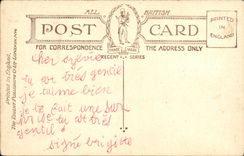 ALL BRITISH
POST CARD
FOR CORRESPONDENCE THE ADDRESS ONLY
TRADE MARK
REGENT SERIES
PRINTED IN ENGLAND
Printed in England.
The Regent Publishing Co Ld London
cher sylvie
tu es très gentie
je t'aime bien
je te fait une
tu es très
gentil
signé brigite